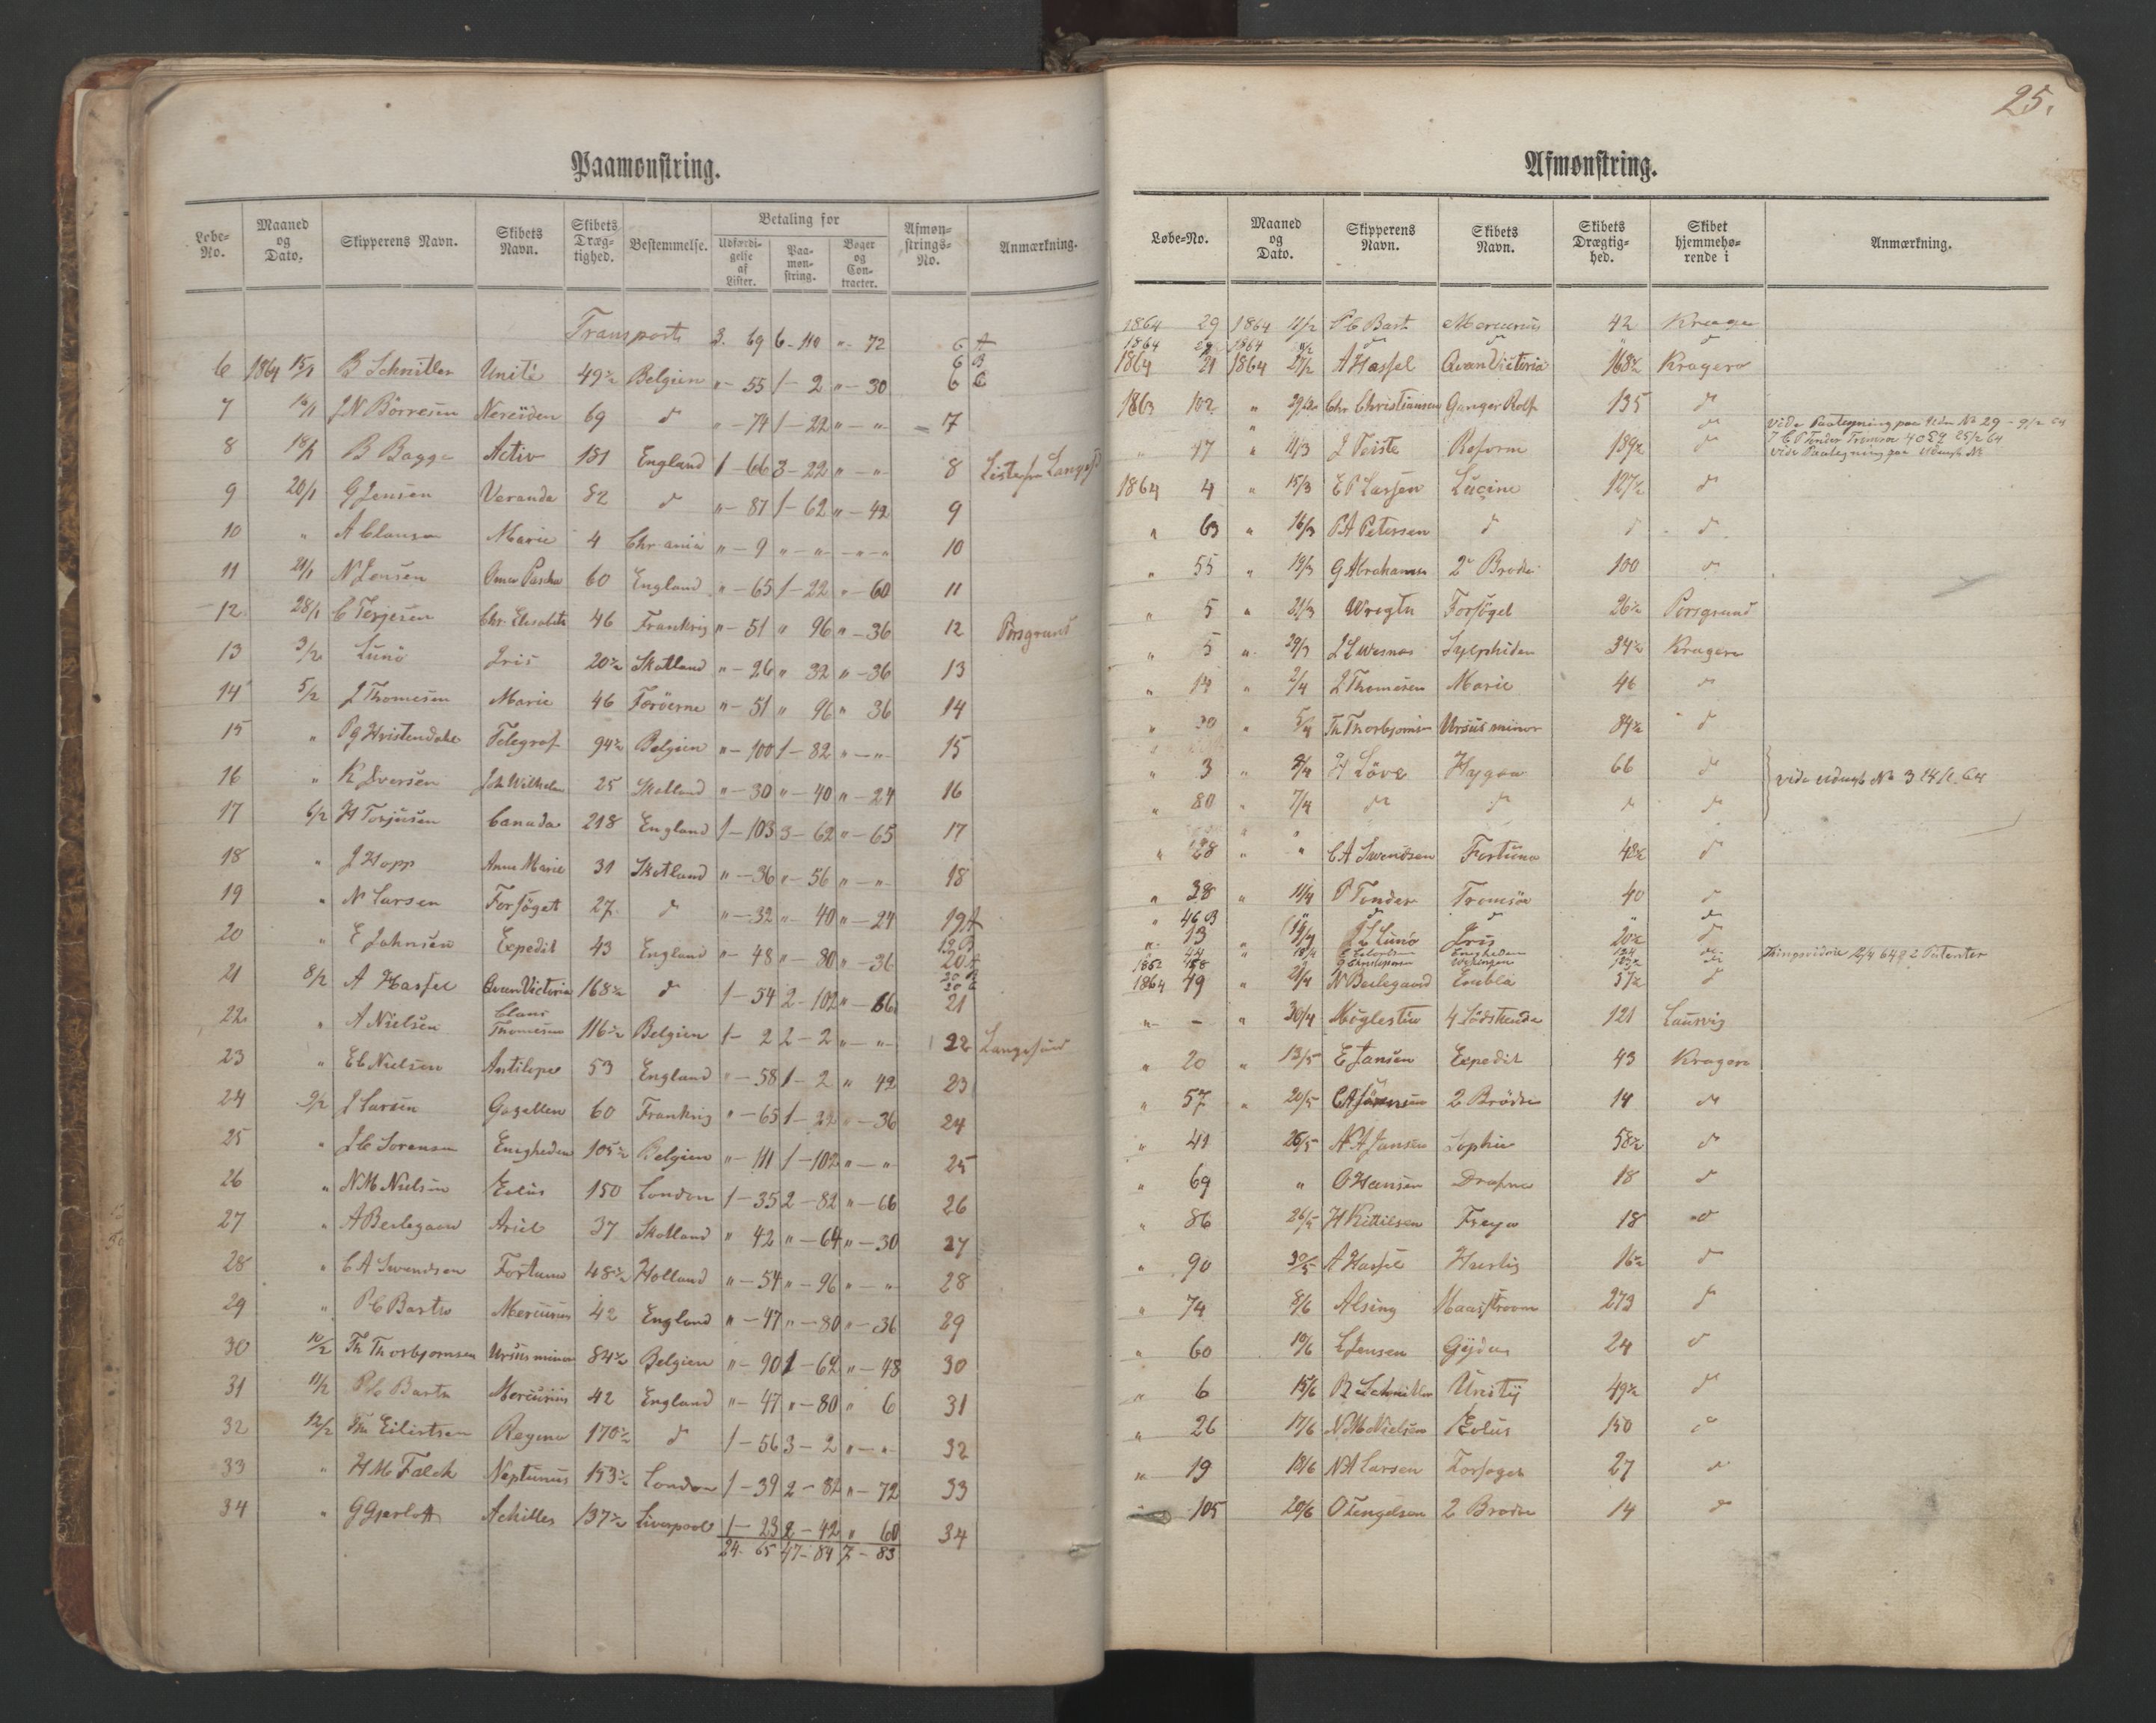 Paamønstring.
Løbe-No. Maaned og Dato. Skipperens Navn. Skibets Navn. Skibets Dræg-tighed. Bestemmelse. Betaling for Udfærdi-gelse af Lister. Paa-møn-string. Bøger og Con-tracter. Afmøn-strings-No. Anmærkning.
Transport 3. 69 6-110 "-72 6 A
6 B
6 1864 15/1 B Schnitler Unité 49½ Belgien "-55 1-2 "-30 6 C
7 16/1 J N Börresen Nereiden 69 d "-74 1-22 "-" 7
8 18/1 B Bagge Activ 181 England 1-66 3-22 "-" 8 Liste fra
9 20/1 G Jensen Veranda 82 d "-87 1-62 "-42 9
10 " A Clausen Marie 4 Chr.ania "-9 "-" "-" 10
11 21/1 N Jensen Omer Pascha 60 England "-65 1-22 "-60 11
12 28/1 C Terjesen Chr. Elisabeth 46 Frankrig "-51 " 96 "-36 12 Porsgrund
13 3/2 Lunö Iris 20½ Skotland "-26 " 32 "-36 13
14 5/2 J Thomesen Marie 46 Færöerne "-51 " 96 " 36 14
15 " Telegraf 94½ Belgien "-100 1-82 "-" 15
16 " K Iversen Joh Wilhelm 25 Skotland "-30 "-40 "-24 16
17 6/2 H Torjusen Canada 218 England 1-103 3-62 "-65 17
18 " J Hopp Anne Marie 31 Skotland "-36 "-56 "-" 18
19 " N Larsen Forsöget 27 d "-32 "-40 "-24 19 A
19 B
20 " E Johnsen Expedit 43 England "-48 "-80 "-36 20 A
20 B
20 C
21 8/2 A Hassel Qveen Victoria 168½ d 1-54 2-102 "-66 21
22 " A Nielsen Claus Thomesen 116½ Belgien 1-2 2-2 "-" 22 Langesund
23 " E C Nielsen Antilope 53 England "-58 1-2 " 42 23
24 9/2 J Larsen Gazellen 60 Frankrig "-65 1-22 "-36 24
25 " J C Sorensen Enigheden 105½ Belgien "-111 1-102 "-" 25
26 " N M Nielsen Eolus 150 London 1-35 2-82 "-66 26
27 " A Beilegaard Ariel 37 Skotland " 42 "-64 "-30 27
28 " C A Swendsen Fortuna 48½ Holland "-54 "-96 "-" 28
29 " P C Barth Mercurius 42 England "-47 "-80 "-36 29
30 10/2 Th Thorbjornsen Ursus minor 84½ Belgien "-90 1-62 "-48 30
31 11/2 P C Barth Mercurius 42 England "-47 "-80 " 6 31
32 12/2 Eilertsen Regina 170½ d 1-56 3-2 "-" 32
33 " H M Falck Neptunus 153½ London 1-39 2-82 "-72 33
34 " G Gjerloff Achilles 137½ Liverpool 1-23 2-42 " 60 34
24-65 47-84 7-83
25.
Afmønstring.
Løbe-No. Maaned og Dato. Skipperens Navn. Skibets Navn. Skibets Drægtig-hed. Skibet hjemmehø-rende i Anmærkning.
1864 29 1864 11/2 P C Barth Mercurius 42 Kragerø
1864 1864 11/2 d d " d
1864 21 1864 27/2 A Hassel Qveen Victoria 168½ Kragerø
1863 102 " 29/2 Chr Christiansen Ganger Rolf 135 d
d vide Paategning paa Udm No 29 - 9/2 64
" 47 " 11/3 J Teiste Reform 189½ d
1864 4 " 15/3 E P Larsen Lucine 127½ d
" 63 " 16/3 P A Petersen d d d
" 55 " 19/3 G Abrahamsen 2de Brødre 100 d
" 5 " 21/3 Wregtn Forsøget 26½ Porsgrund
" 5 " 29/3 Sylphiden 34½ Kragerø
" 14 " 2/4 J Thomesen Marie 46 d
" 30 " 5/4 Th Thorbjornsen Ursus minor 84½ d
" 3 " 8/4 H Löve Hygea 66 d vide udmst No 3 14/1 64
" 80 " 7/4 d d d d
" 28 " " C A Swendsen Fortuna 48½ d
" 38 " 11/4 P Tonder Tromsöe 40 d
" 46 B " d d " d
" 13 " 14/4 J L Lunö Iris 20½ d
" 44 " 18/4 Enigheden d
1862 d 2 Patenter
1864 49 " 21/4 N Beilegaard Embla 37½ d
" - " 30/4 Møglestue 4 Södskende 121 Laurvig
" 20 " 13/5 E Jansen Expedit 43 Kragerø
" 57 " 20/5 C A Sörensen 2 Brödre 14 d
" 41 26/5 N A Jansen Sophie 58½ d
" 69 " O Hansen Drafna 18 d
" 86 26/5 H Kittilsen Freya 18 d
" 90 30/5 A Hassel Hurtig 16½ d
" 74 8/6 Alsing Maasstroom 273 d
" 60 10/6 E Jensen Gyda 24 d
" 6 15/6 B Schnitler Unity 49½ d
" 26 17/6 N M Nielsen Eolus 150 d
" 19 18/6 N A Larsen Forsøget 27 d
" 105 20/6 O Tengelsen 2 Brødre 14 d